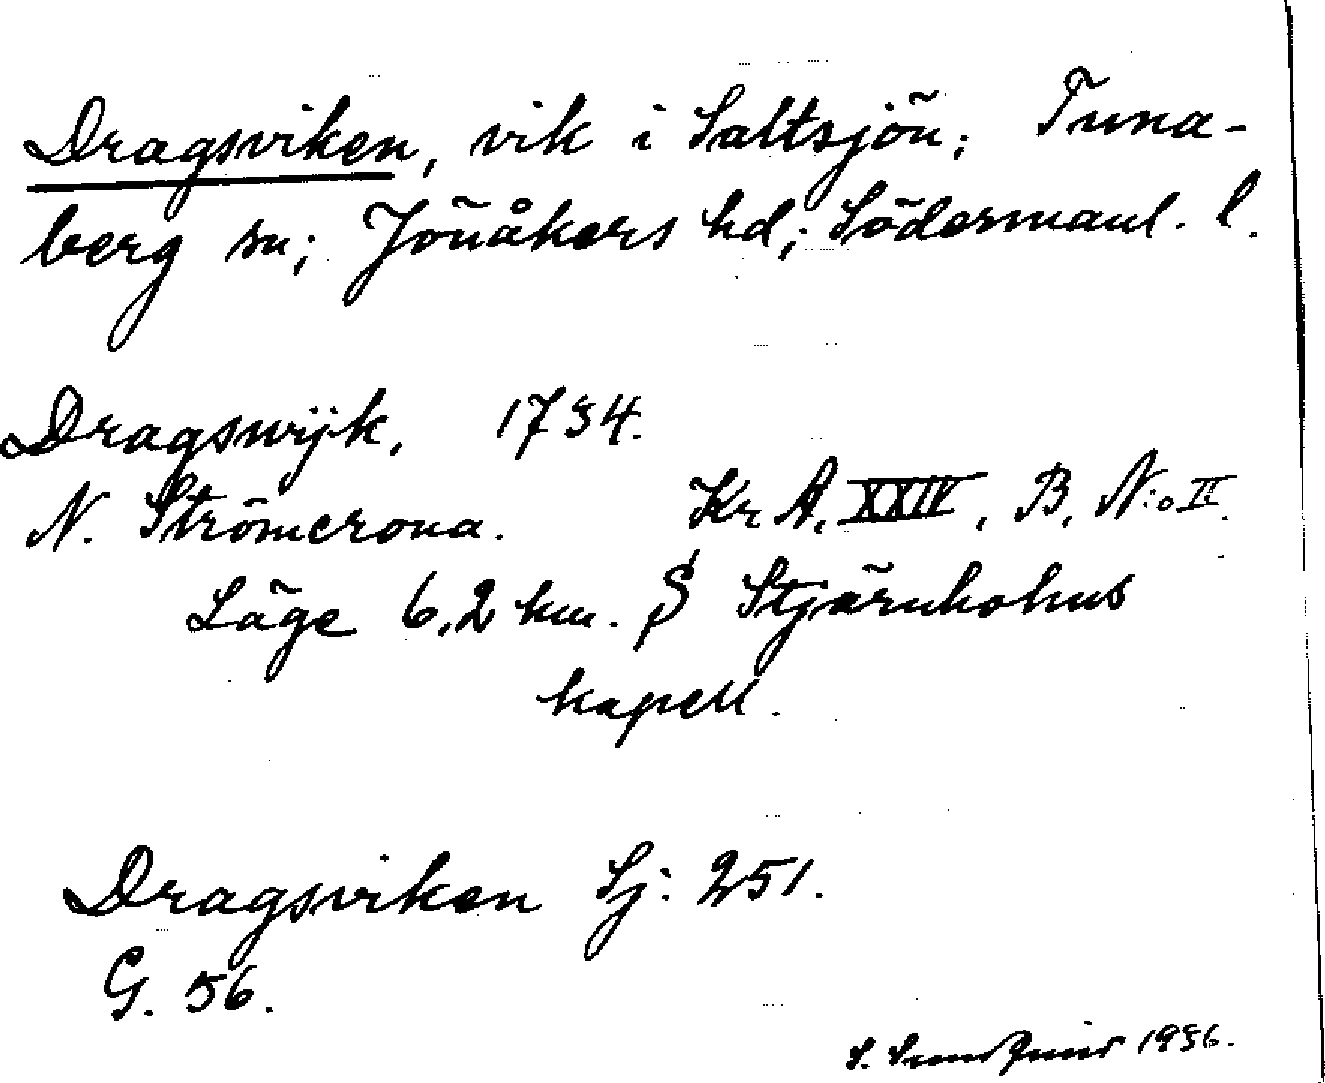 Dragsviken, vik i Saltsjön; Tuna-
berg sn; Jönåkers hd; Södermanl. l.
Dragswijk, 1734.
N. Strömcrona. Kr A, XXIV, B, N:o II.
Läge 6,2 km. S Stjärnhohus
kapell.
Dragsviken Sj: 251.
G. 56.
S. 1936.